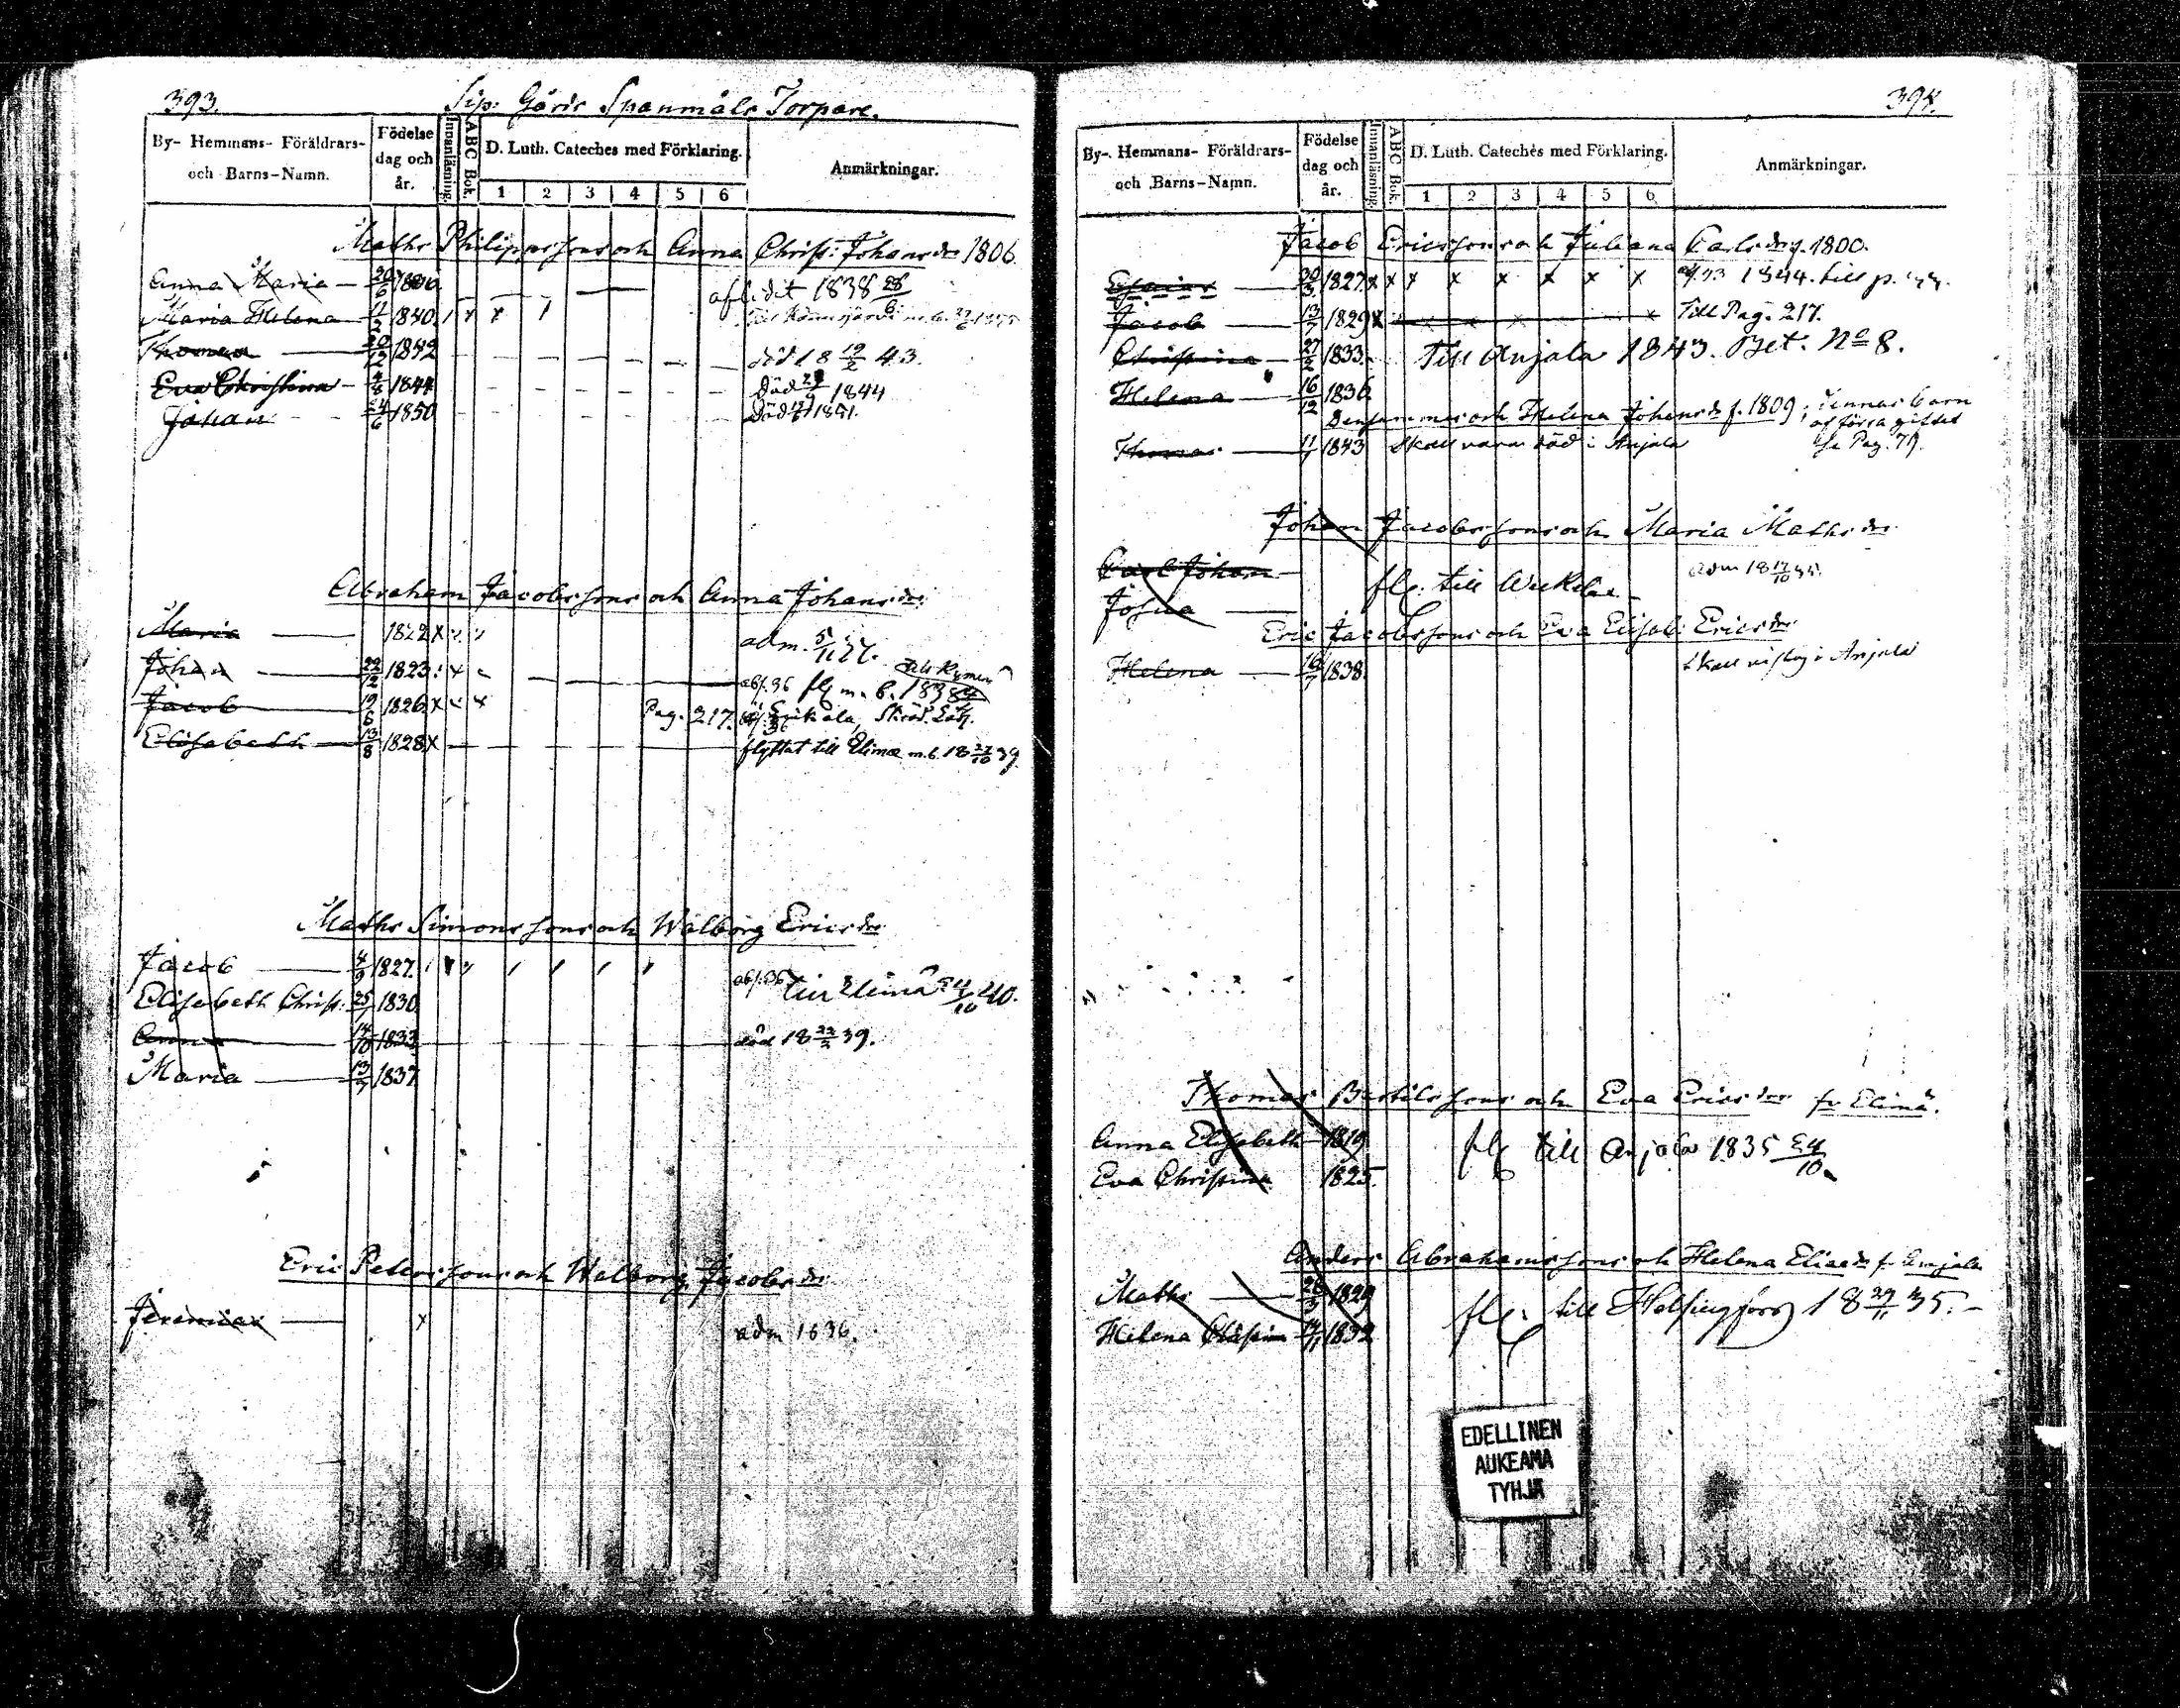 393.
Sip: Gårds Spanmåls Torpare.
By- Hemmans- Föräldrars- och Barns-Namn.
Födelse dag och år.
Innanläsning.
ABC Bok.
D. Luth. Cateches med Förklaring.
1 2 3 4 5 6
Anmärkningar.
Maths Philipssons och Anna Christ: Johansdr 1806.
Anna Maria 20/6 afledit 1838 28/6
Maria Helena 11/2 1840
Thomas 20/12 1842 död 18 19/2 43.
Eva Christina 4/8 1844 död 1844
Johan 24/6 1850 död 1851.
Abraham Jacobssons och Anna Johansdr.
Maria 1822 adm.
Johan 22/12 1823 abs. 36 flg m. b.
Jacob 19/6 1826 Pag. 217.
Elisabeth 13/8 1828 flyttat till Elimä m. b. 18 27/10 39.
Maths Simonssons och Walborg Ericsdr
Jacob 4/9 1827. abs: 36
Elisabeth Christ: 25/1 1830 till Elimä 24/10 40.
Anna 14/10 1833 död 18 22/2 39.
Maria 13/7 1837
Eric Peterssons och Walborg Jacobsdr
Jeremias adm 1836.
394.
By-. Hemmans- Föräldrars- och Barns-Namn.
Födelse dag och år.
Innanläsning.
ABC Bok.
D. Luth. Cateches med Förklaring.
1 2 3 4 5 6
Anmärkningar.
Jacob Ericssons och Juliana Carlsdr f. 1800.
Esaias 30/3 1827. 1844. till p.
Jacob 13/7 1829 Till Pag. 217.
Christina 27/2 1833 Till Anjala 1843. Bet. No 8.
Helena 16/12 1836
Densammes och Helena Johansdr f. 1809; dennas barn
af förra giftet
Se Pag. 79.
Thomas 11/1 1843 Skall vara död i Anjala
Johan Jacobssons och Maria Mathsdr
Carl Johan adm 18 17/10 35.
Josua flg. till
Eric Jacobssons och Eva Elisab: Ericsdr
Helena 16/7 1838. Skall vistas i Anjala
Thomas Bertilssons och Eva Ericsdr fr Elimä.
Anna Elisabeth 1819
Eva Christina 1825. flg till Anjala 1835 24/10.
Anders Abrahamssons och Helena Eliaedr fr Anjala
Maths 26/3 1829 flg. till Helsingfors 18 29/11 35.
Helena Christina 14/11 1832
EDELLINEN
AUKEAMA
TYHJÄ